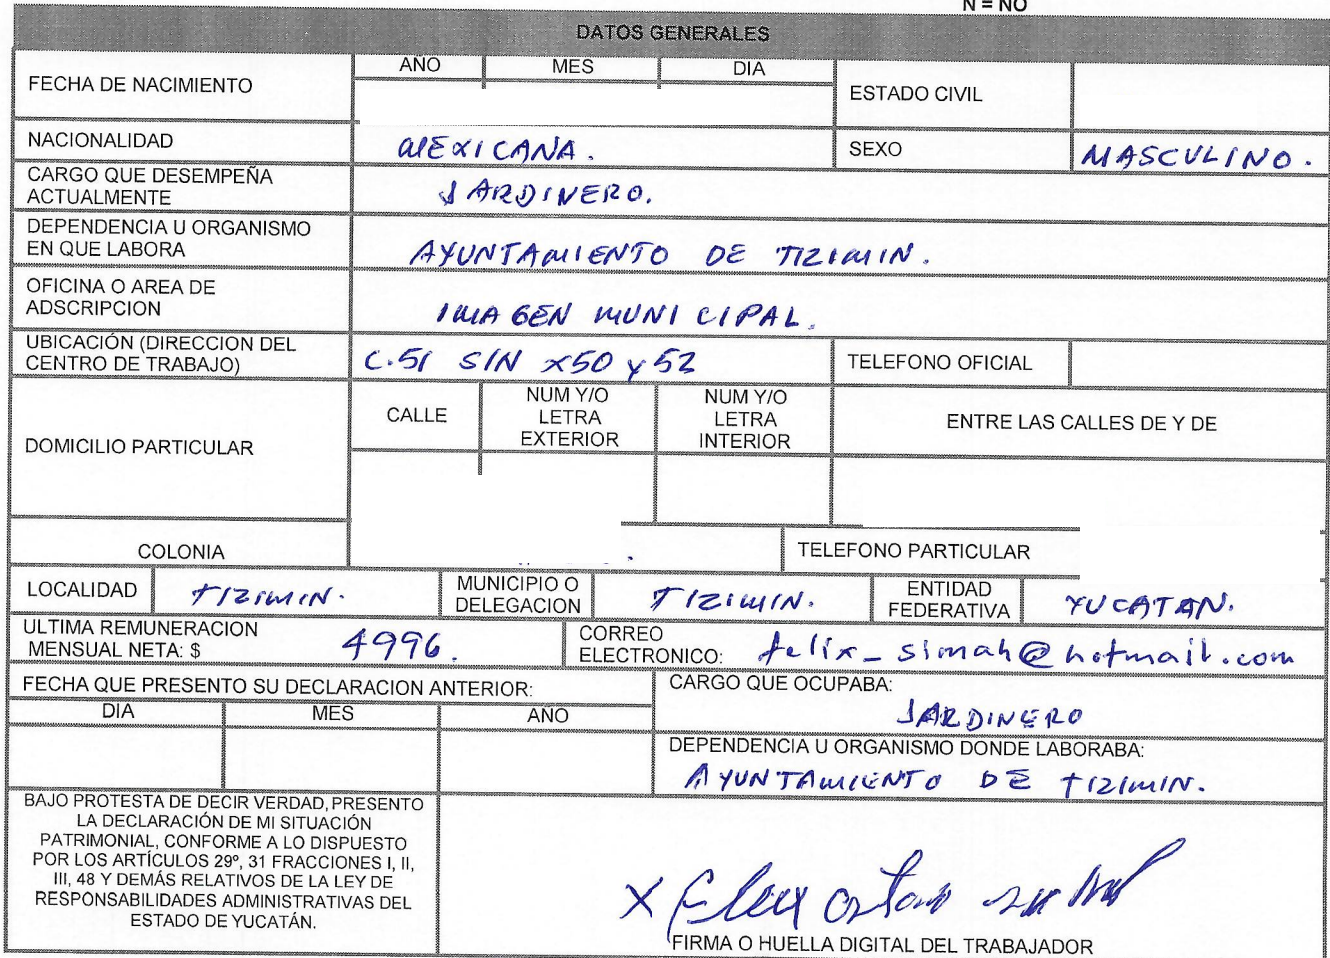 N = NO
DATOS GENERALES
FECHA DE NACIMIENTO
AÑO MES DIA
ESTADO CIVIL
NACIONALIDAD MEXICANA. SEXO MASCULINO.
CARGO QUE DESEMPEÑA
ACTUALMENTE
JARDINERO.
DEPENDENCIA U ORGANISMO
EN QUE LABORA
AYUNTAMIENTO DE TIZIMIN.
OFICINA O AREA DE
ADSCRIPCION
IMAGEN MUNICIPAL.
UBICACIÓN (DIRECCION DEL
CENTRO DE TRABAJO)
C.51 S/N x50 y 52
TELEFONO OFICIAL
DOMICILIO PARTICULAR
CALLE
NUM Y/O
LETRA
EXTERIOR
NUM Y/O
LETRA
INTERIOR
ENTRE LAS CALLES DE Y DE
COLONIA
TELEFONO PARTICULAR
LOCALIDAD TIZIMIN.
MUNICIPIO O
DELEGACION
TIZIMIN.
ENTIDAD
FEDERATIVA
YUCATAN.
ULTIMA REMUNERACION
MENSUAL NETA: $
4996.
CORREO
ELECTRONICO:
felix_simah@hotmail.com
FECHA QUE PRESENTO SU DECLARACION ANTERIOR:
DIA MES AÑO
CARGO QUE OCUPABA:
JARDINERO
DEPENDENCIA U ORGANISMO DONDE LABORABA:
AYUNTAMIENTO DE TIZIMIN.
BAJO PROTESTA DE DECIR VERDAD, PRESENTO
LA DECLARACIÓN DE MI SITUACIÓN
PATRIMONIAL, CONFORME A LO DISPUESTO
POR LOS ARTÍCULOS 29º, 31 FRACCIONES I, II,
III, 48 Y DEMÁS RELATIVOS DE LA LEY DE
RESPONSABILIDADES ADMINISTRATIVAS DEL
ESTADO DE YUCATÁN.
X
FIRMA O HUELLA DIGITAL DEL TRABAJADOR